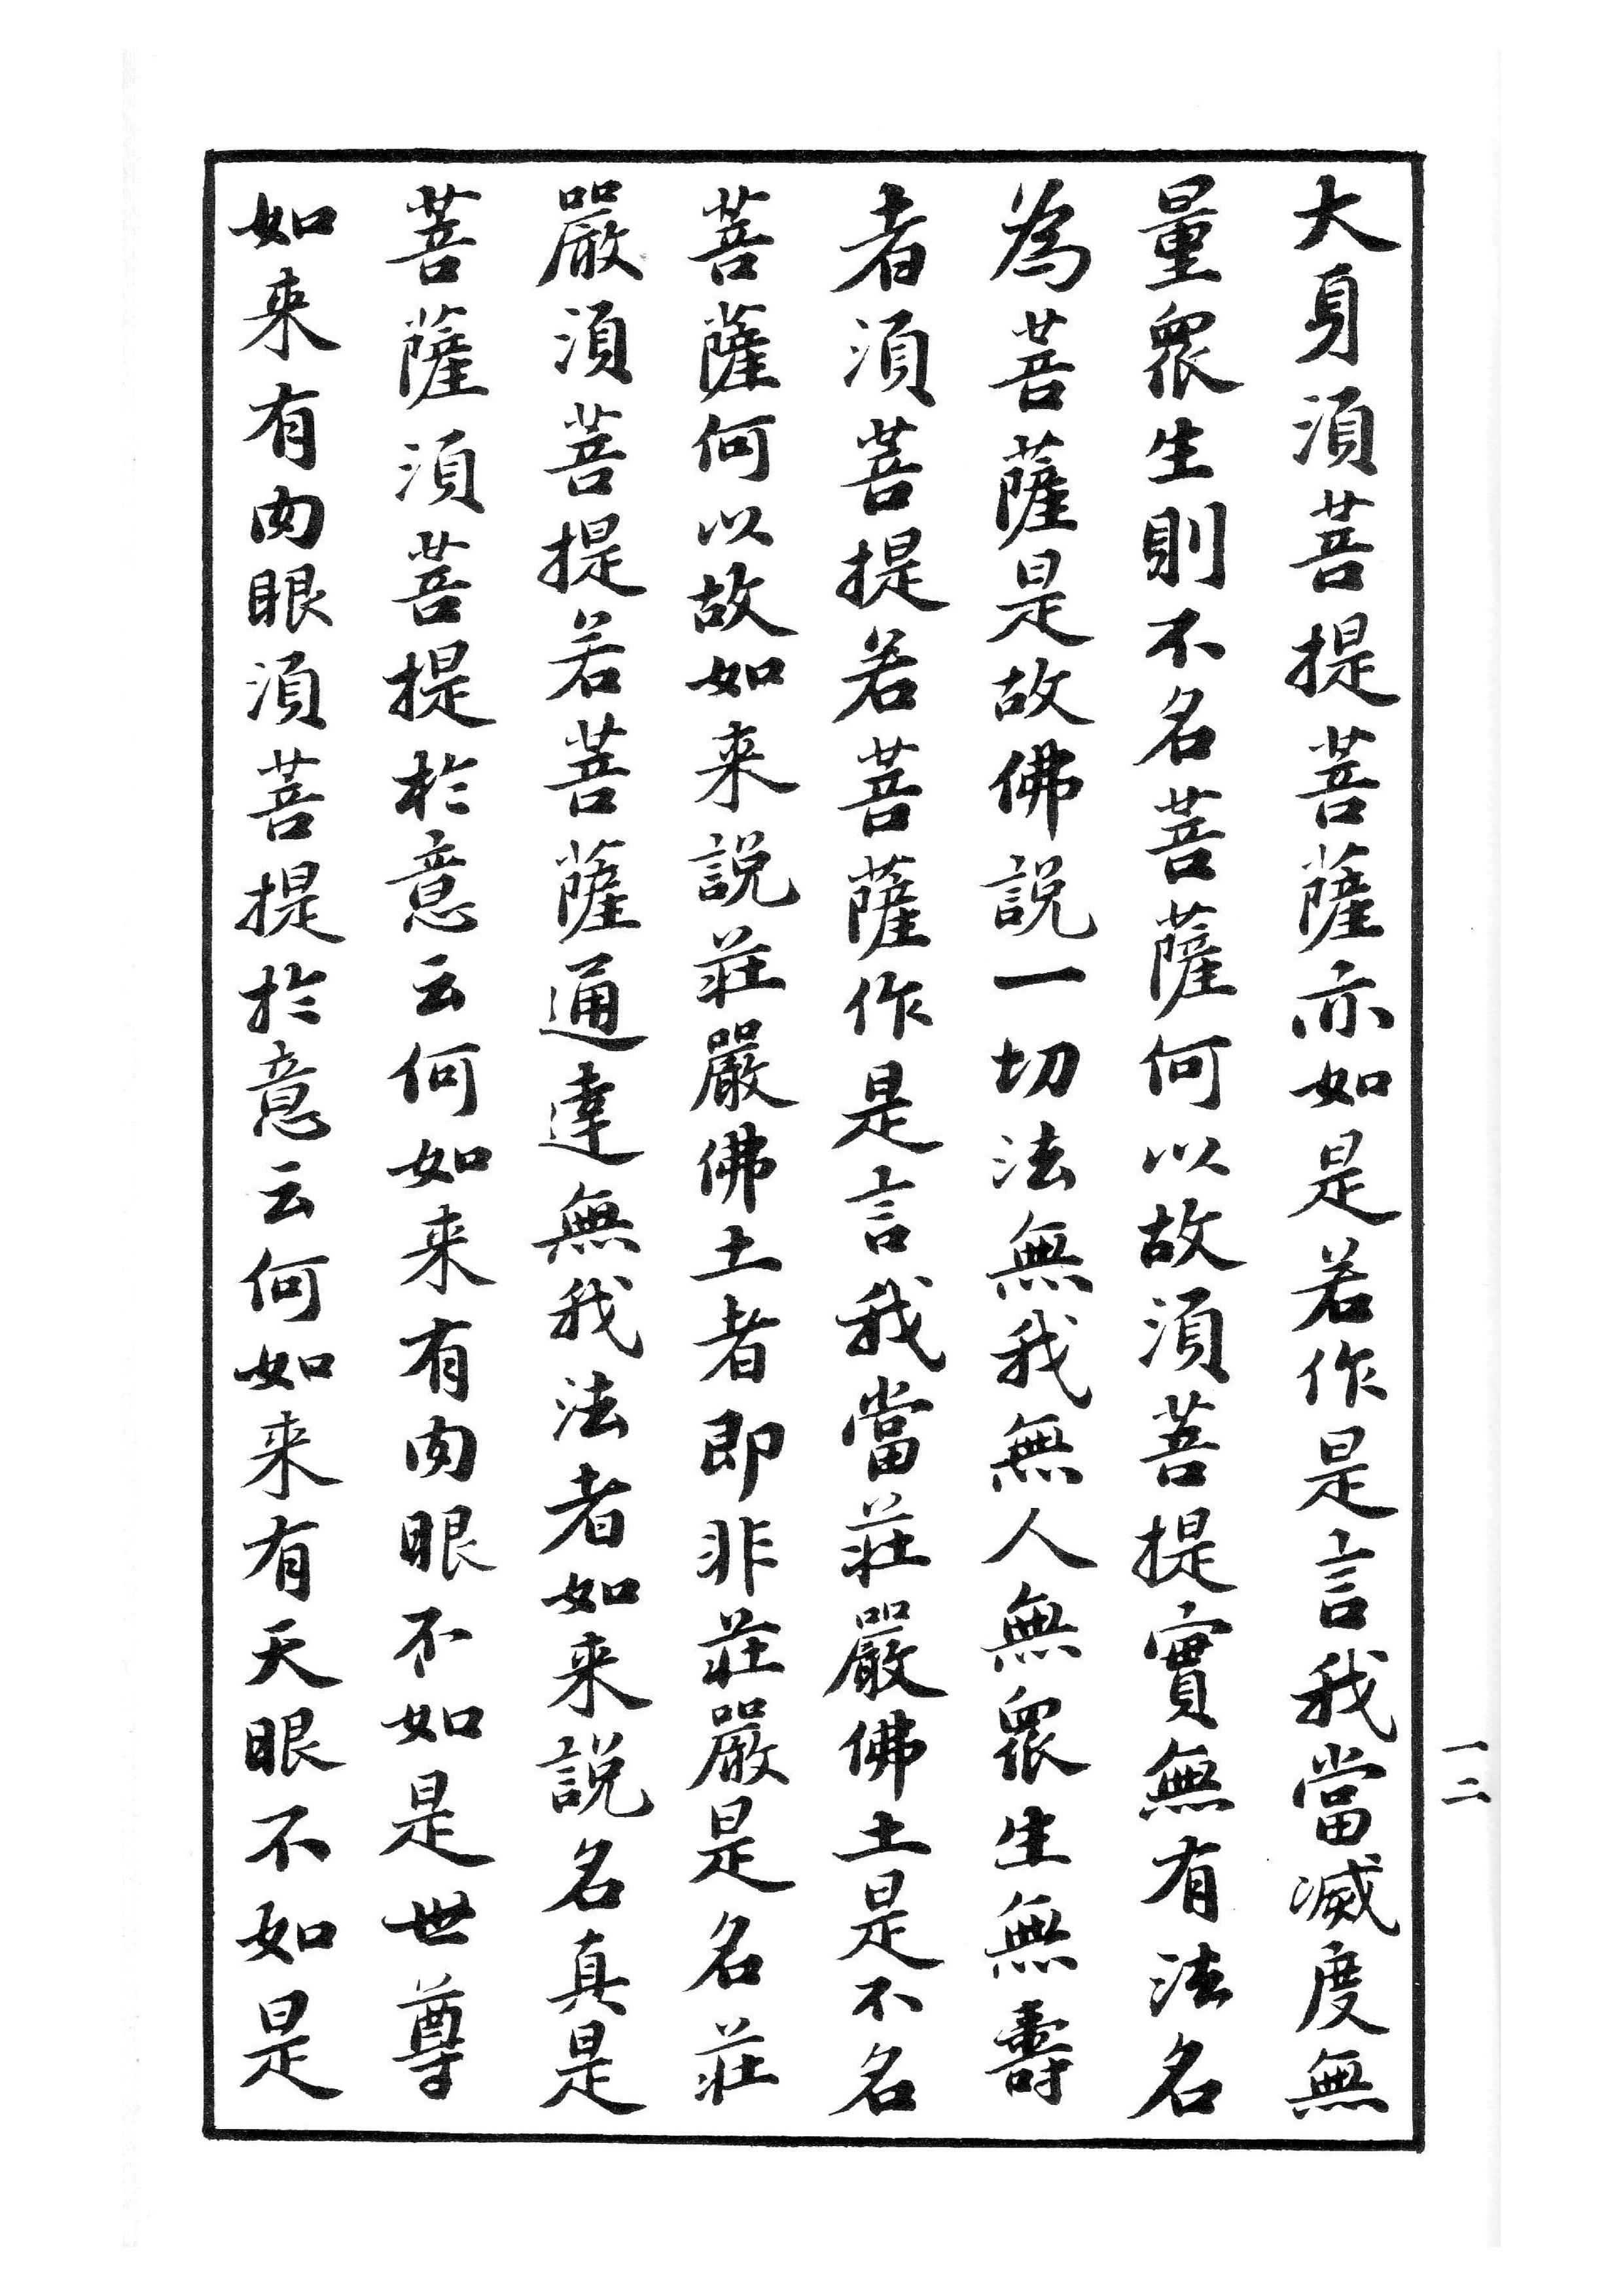 大身須菩提菩薩亦如是若作是言我當滅度無
量眾生則不名菩薩何以故須菩提實無有法名
為菩薩是故佛說一切法無我無人無眾生無壽
者須菩提若菩薩作是言我當莊嚴佛土是不名
菩薩何以故如来說莊嚴佛土者即非莊嚴是名莊
嚴須菩提若菩薩通達無我法者如来說名真是
菩薩須菩提於意云何如来有肉眼不如是世尊
如来有肉眼須菩提於意云何如来有天眼不如是
一二